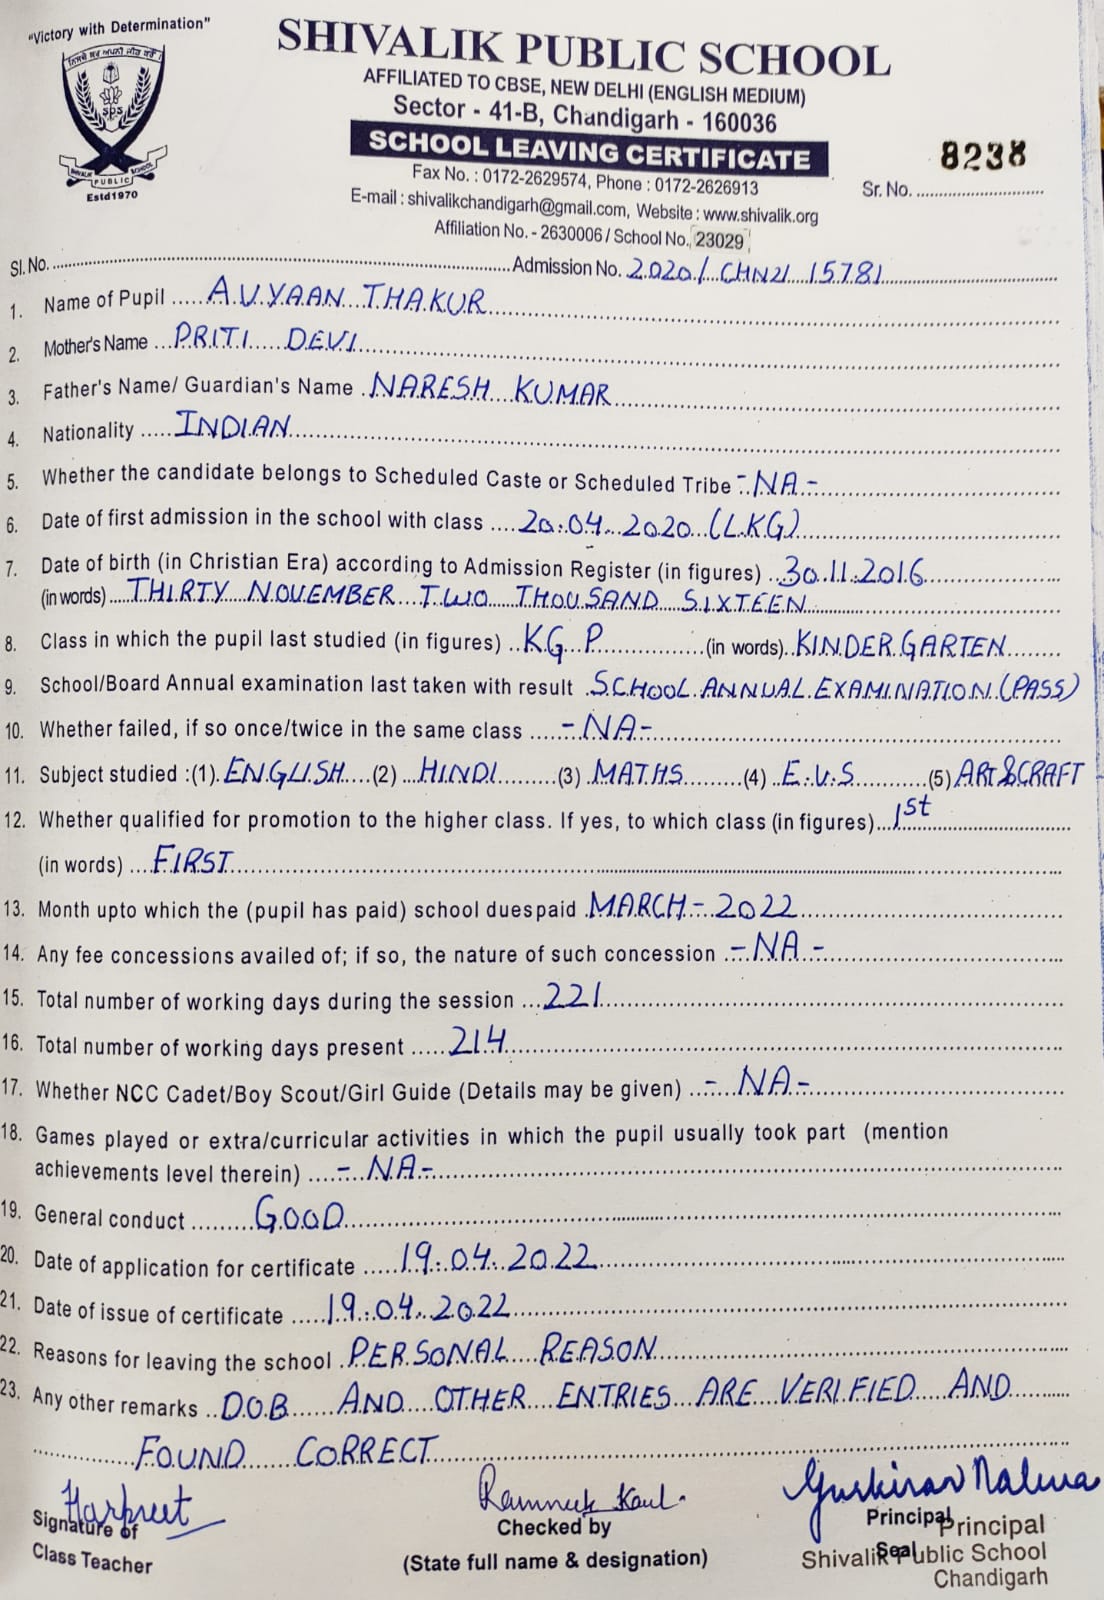 "Victory with Determination"
SHIVALIK PUBLIC SCHOOL
AFFILIATED TO CBSE, NEW DELHI (ENGLISH MEDIUM)
Sector - 41-B, Chandigarh - 160036
SCHOOL LEAVING CERTIFICATE
8238
Fax No. : 0172-2629574, Phone : 0172-2626913
Sr. No. ..............................
E-mail : shivalikchandigarh@gmail.com, Website : www.shivalik.org
Affiliation No. - 2630006 / School No. 23029
SPS
SHIVALIK PUBLIC SCHOOL
Estd1970
Sl. No. .......... Admission No. 2020/CHN21 15781
1. Name of Pupil ..... AVYAAN THAKUR
2. Mother's Name ... PRITI DEVI
3. Father's Name/ Guardian's Name . NARESH KUMAR
4. Nationality ..... INDIAN
5. Whether the candidate belongs to Scheduled Caste or Scheduled Tribe -NA-
6. Date of first admission in the school with class .... 20.04.2020 (L.KG)
7. Date of birth (in Christian Era) according to Admission Register (in figures) .. 30.11.2016
(in words) .... THIRTY NOVEMBER TWO THOUSAND SIXTEEN
8. Class in which the pupil last studied (in figures) .. KG P (in words).. KINDERGARTEN
9. School/Board Annual examination last taken with result . SCHOOL ANNUAL EXAMINATION (PASS)
10. Whether failed, if so once/twice in the same class .... -NA-
11. Subject studied :(1). ENGLISH (2) HINDI (3) MATHS (4) E.V.S (5) ART & CRAFT
12. Whether qualified for promotion to the higher class. If yes, to which class (in figures)... 1st
(in words) .... FIRST
13. Month upto which the (pupil has paid) school duespaid . MARCH - 2022
14. Any fee concessions availed of; if so, the nature of such concession -NA-
15. Total number of working days during the session ... 221
16. Total number of working days present ..... 214
17. Whether NCC Cadet/Boy Scout/Girl Guide (Details may be given) - NA-
18. Games played or extra/curricular activities in which the pupil usually took part (mention
achievements level therein) .... - NA-
19. General conduct ......... GOOD
20. Date of application for certificate ..... 19.04.2022
21. Date of issue of certificate ..... 19.04.2022
22. Reasons for leaving the school . PERSONAL REASON
23. Any other remarks .. D.O.B AND OTHER ENTRIES ARE VERIFIED AND
FOUND CORRECT
Harpreet
Ramneek Kaul
Gurkiran Nalwa
Signature of
Class Teacher
Checked by
(State full name & designation)
Principal
Seal
Principal
Shivalik Public School
Chandigarh